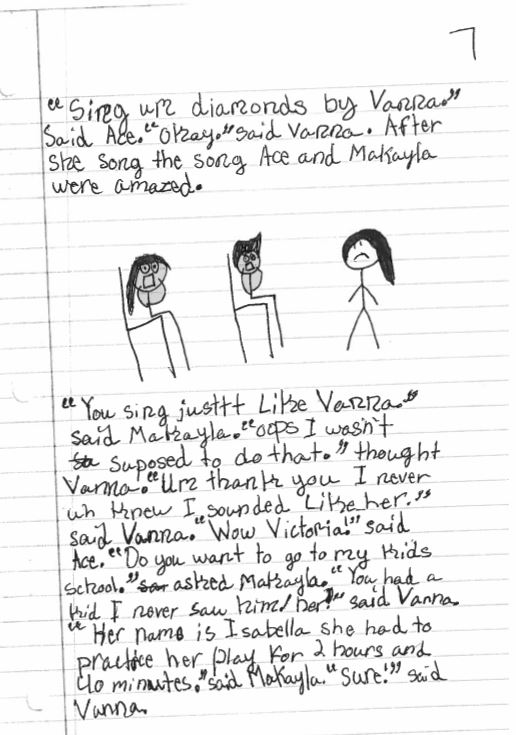 7
"Sing um diamonds by Vanna."
Said Ace. "Okay." said Vanna. After
she song the song Ace and Makayla
were amazed.
"You sing justtt Like Vanna."
said Makayla. "oops I wasn't
suposed to do that." thought
Vanna. "Um thank you I never
uh knew I sounded Like her."
said Vanna. "Wow Victoria!" said
Ace. "Do you want to go to my kids
school." asked Makayla. "You had a
kid I never saw him/her!" said Vanna.
"Her name is Isabella she had to
practice her play for 2 hours and
40 minutes." said Makayla. "Sure!" said
Vanna.